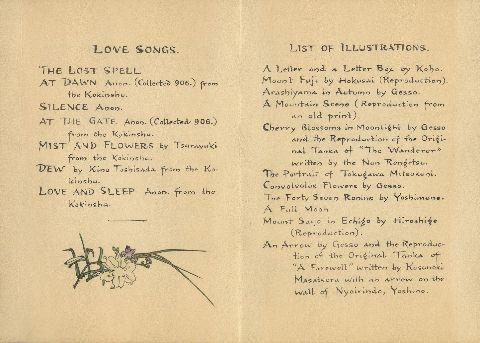 LOVE SONGS.
THE LOST SPELL
AT DAWN Anon. (Collected 906.) from
the Kokinshu.
SILENCE Anon.
AT THE GATE Anon. (Collected 906.)
from the Kokinshu.
MIST AND FLOWERS by Tsurayuki
from the Kokinshu.
DEW by Kino Toshisada from the Ko-
kinshu.
LOVE AND SLEEP Anon. from the
Kokinshu.
LIST OF ILLUSTRATIONS.
A Letter and a Letter Box by Koho.
Mount Fuji by Hokusai (Reproduction).
Arashiyama in Autumn by Gesso.
A Mountain Scene (Reproduction from
an old print)
Cherry Blossoms in Moonlight by Gesso
and the Reproduction of the Origi-
nal Tanka of "The Wanderer"
written by the Nun Rengetsu.
The Portrait of Tokugawa Mitsukuni.
Convolvulus Flowers by Gesso.
The Forty Seven Ronins by Yoshimune.
A Full Moon
Mount Saijo in Echigo by Hiroshige
(Reproduction).
An Arrow by Gesso and the Reproduc-
tion of the Original Tanka of
"A Farewell" written by Kusunoki
Masatsura with an arrow on the
wall of Nyoirindo, Yoshino.